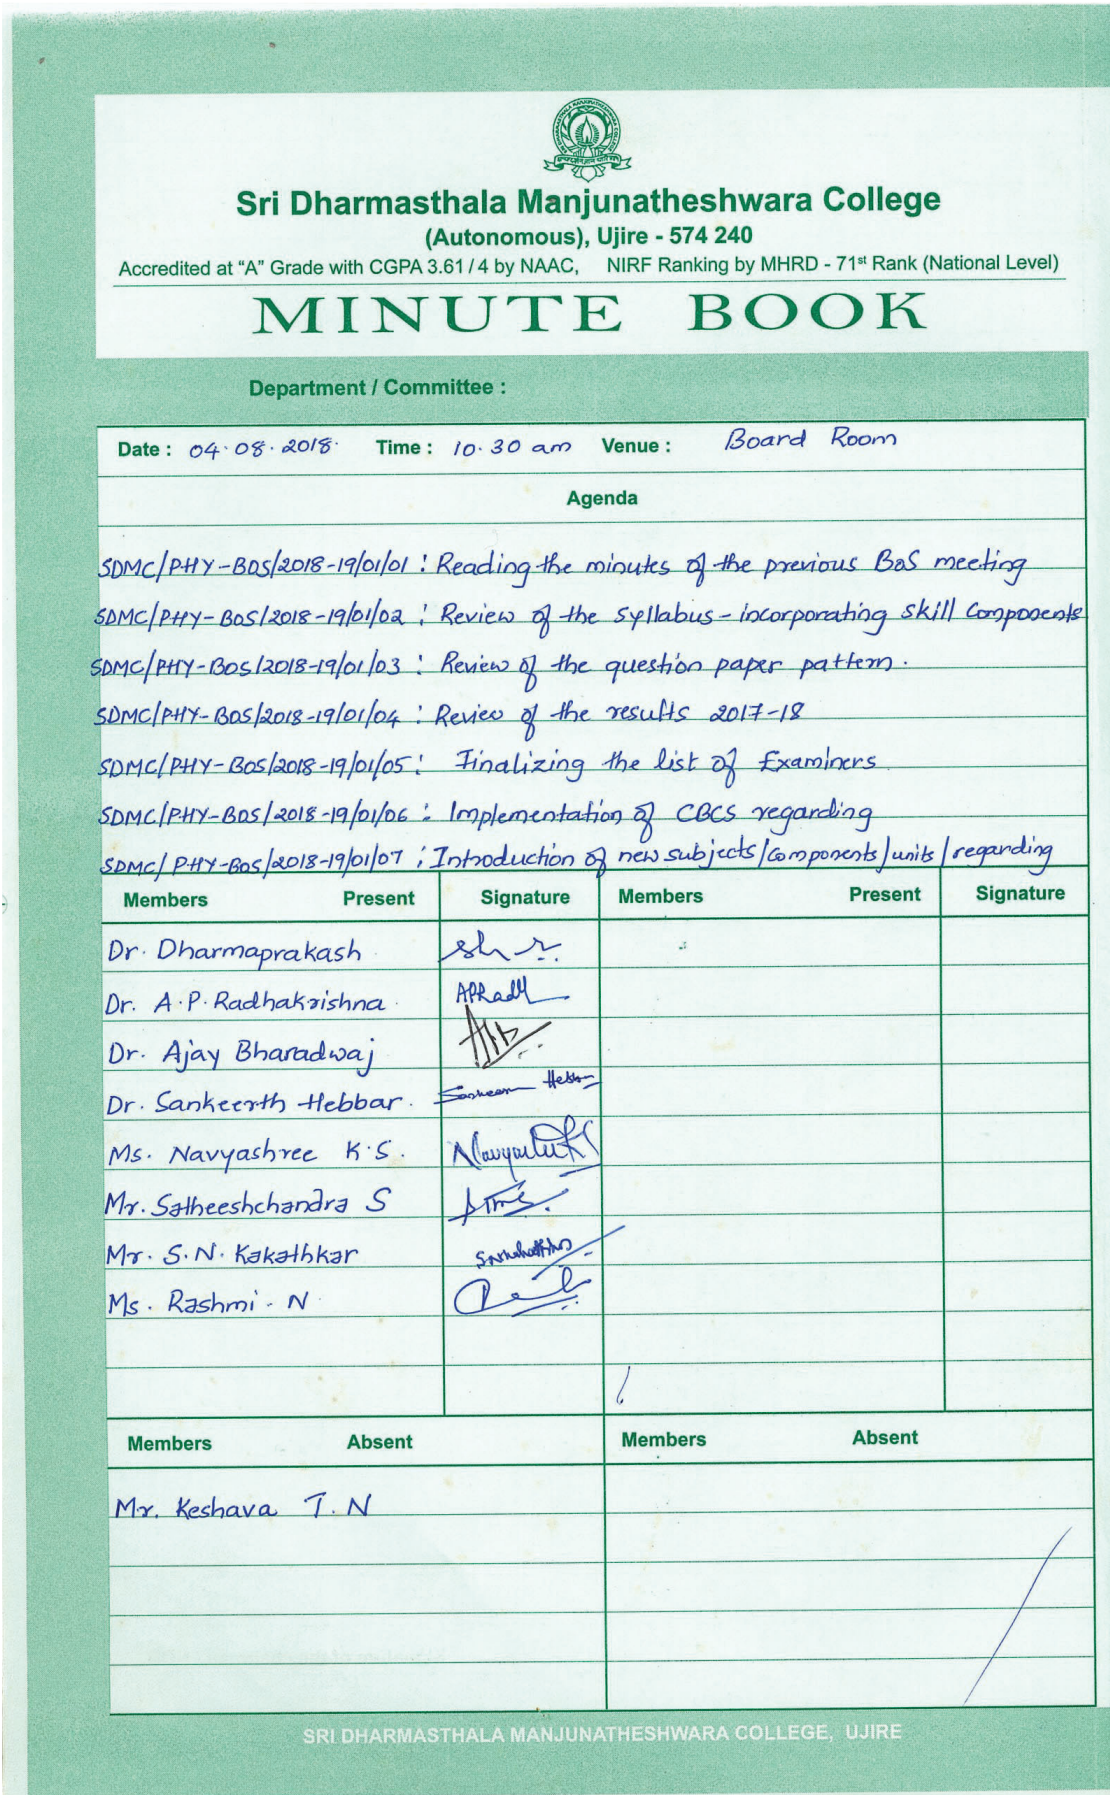 Sri Dharmasthala Manjunatheshwara College
(Autonomous), Ujire - 574 240
Accredited at “A” Grade with CGPA 3.61 / 4 by NAAC, NIRF Ranking by MHRD - 71st Rank (National Level)
MINUTE BOOK
Department / Committee :
Date : 04.08.2018. Time : 10.30 am Venue : Board Room
Agenda
SDMC/PHY-BOS/2018-19/01/01 : Reading the minutes of the previous BoS meeting
SDMC/PHY-BOS/2018-19/01/02 : Review of the syllabus - incorporating skill components
SDMC/PHY-BOS/2018-19/01/03 : Review of the question paper pattern.
SDMC/PHY-BOS/2018-19/01/04 : Review of the results 2017-18
SDMC/PHY-BOS/2018-19/01/05 : Finalizing the list of Examiners
SDMC/PHY-BOS/2018-19/01/06 : Implementation of CBCS regarding
SDMC/PHY-BOS/2018-19/01/07 : Introduction of new subjects/components/units/regarding
Members Present Signature Members Present Signature
Dr. Dharmaprakash
Dr. A.P. Radhakrishna APRadh
Dr. Ajay Bharadwaj
Dr. Sankeerth Hebbar.
Ms. Navyashree K.S.
Mr. Satheeshchandra S
Mr. S.N. Kakathkar
Ms. Rashmi. N
Members Absent Members Absent
Mr. Keshava T.N
SRI DHARMASTHALA MANJUNATHESHWARA COLLEGE, UJIRE